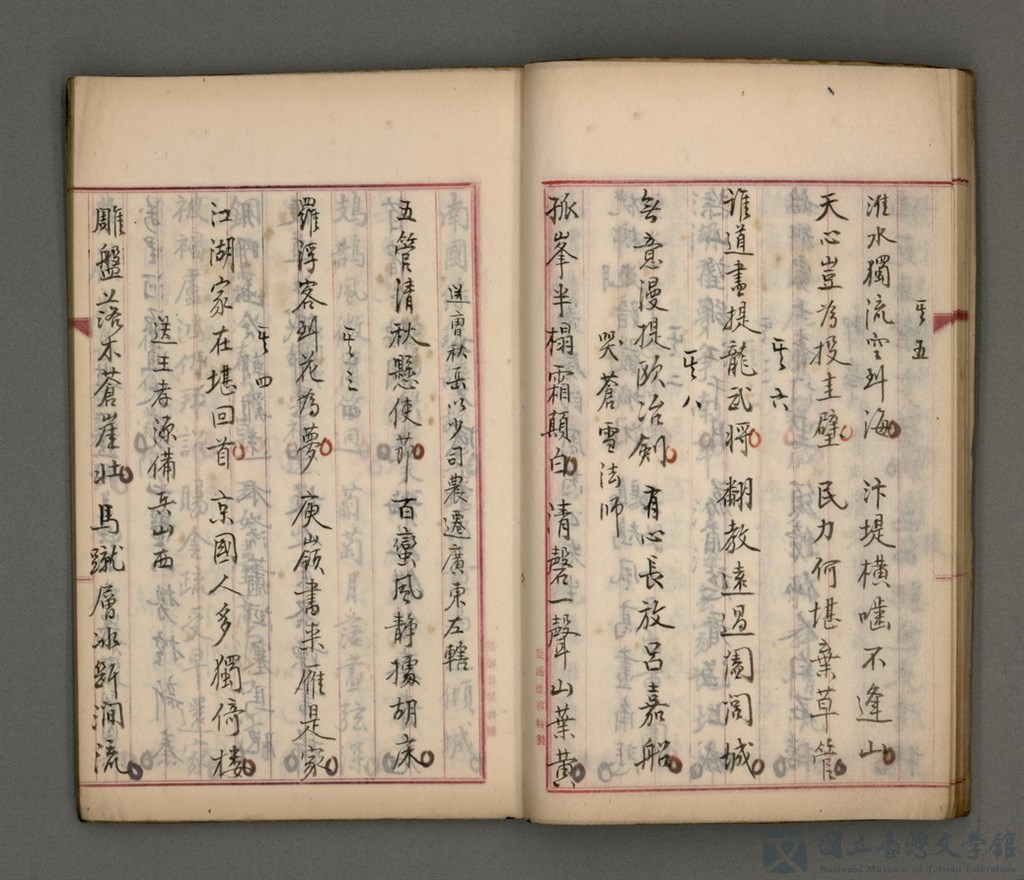 其五
淮水獨流空到海　汴堤橫嚙不逢山
天心豈為投圭壁　民力何堪棄草管
其六
誰道盡提龍武將　翻教遠過闔閭城
其八
無意漫提歐冶劍　有心長放呂嘉船
哭蒼雪法師
孤峯半榻霜顛白　清磬一聲山葉黃
送曹秋岳以少司農遷廣東左轄
五管清秋懸使節　百蠻風靜據胡床
其三
羅浮客到花為夢　庾嶺書來雁是家
其四
江湖家在堪回首　京國人多獨倚樓
送王孝源備兵山西
雕盤落木蒼崖壯　馬蹴層冰斷澗流
國立臺灣文學館
National Museum of Taiwan Literature